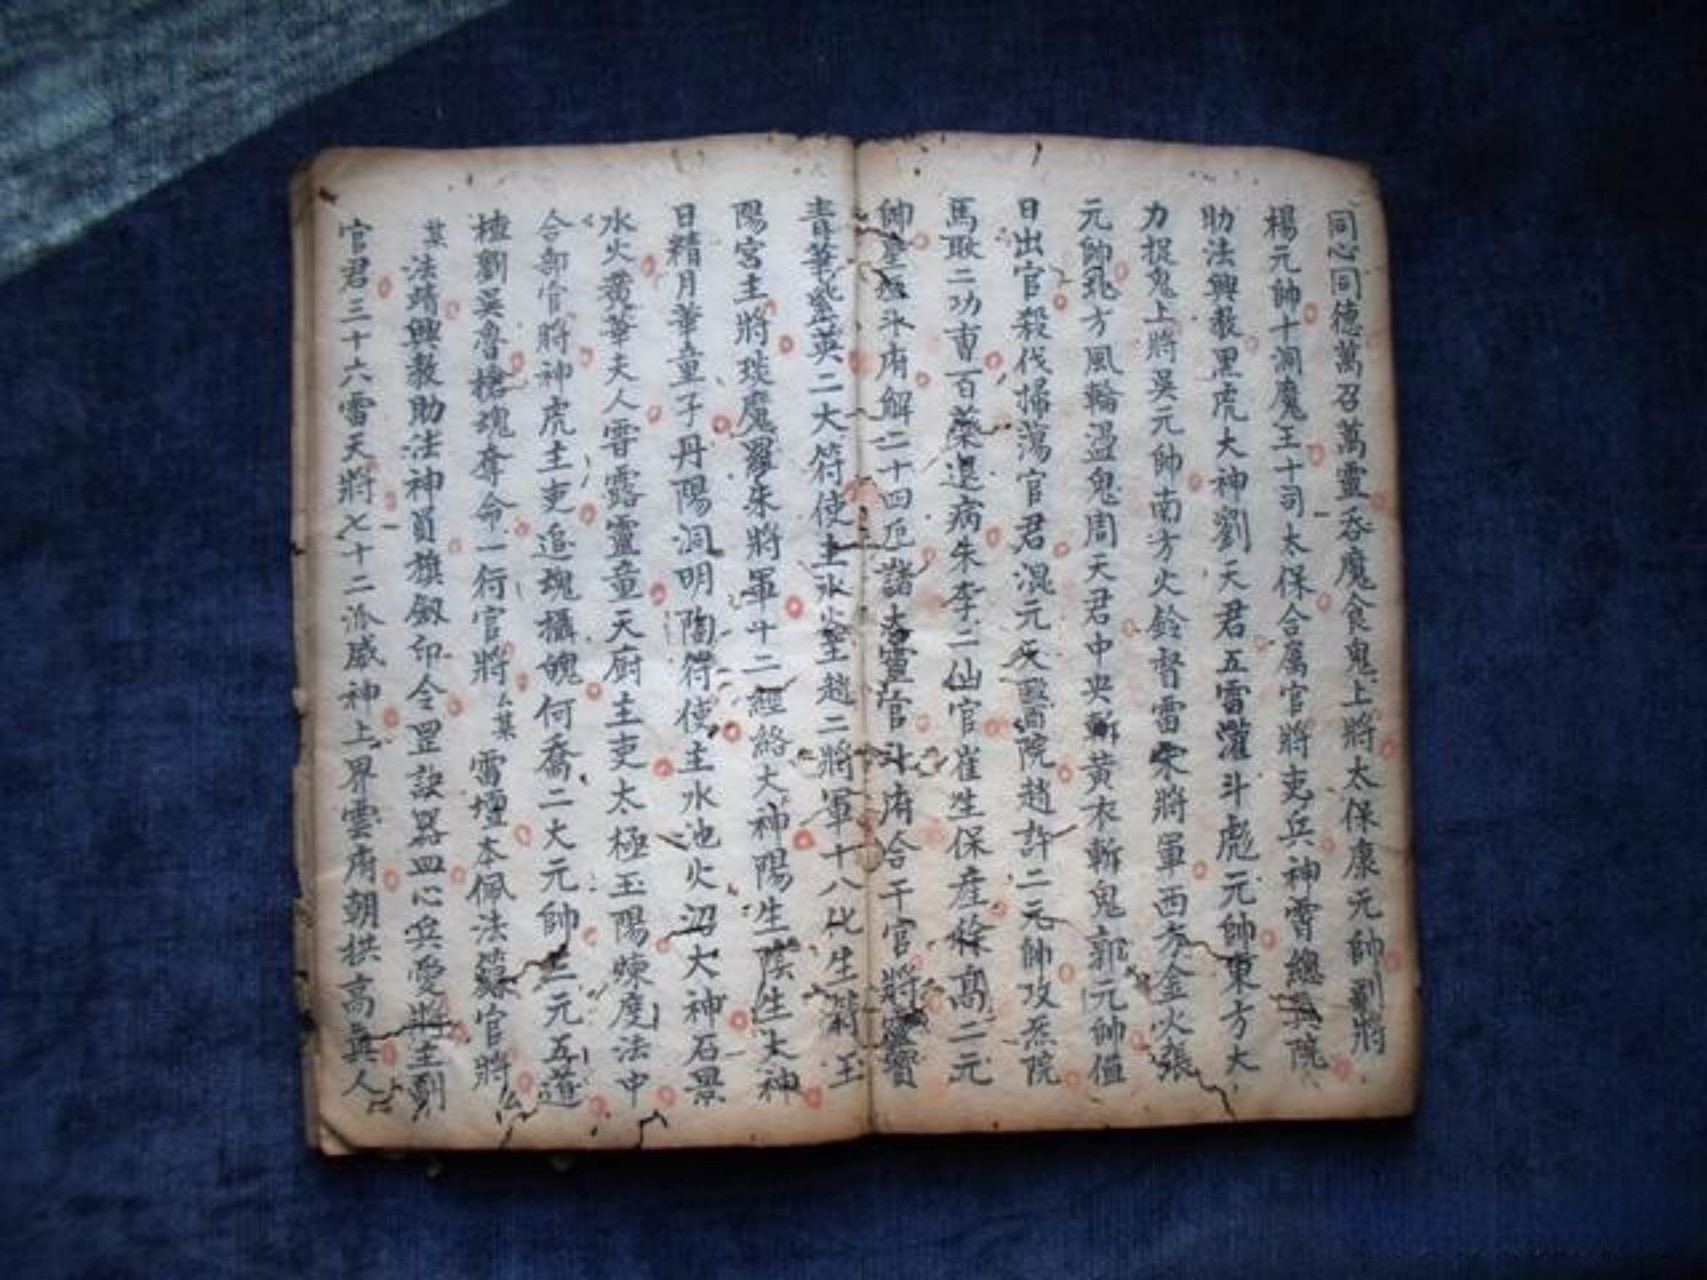 同心同德萬召萬靈吞魔食鬼上將太保康元帥副將
楊元帥十洞魔王十司太保合屬官將吏兵神霄總真院
助法興教黑虎大神劉天君五雷濯斗彪元帥東方大
力捉鬼上將吳元帥南方火鈴督雷宋將軍西方金火張
元帥北方風輪盪鬼周天君中央黃衣斬鬼郭元帥溫
日出官殺伐掃蕩官君混元天醫院趙許二元帥攻炁院
馬耿二功曹百藥退病朱李二仙官崔生保產徐高二元
帥斗府解二十四厄諸大靈官斗府合干官將靈寶
青華紫英二大符使主水火趙二將軍十八生符玉
陽宮主將琰魔羅朱將軍十二經絡大神陽生陰生大神
日精月華童子丹陽洞明陶符使主水池火沼大神石景
水火黃華夫人雪露靈童天廚主吏太極玉陽煉度法中
合部官將神虎主吏追魂攝魄何喬二大元帥三元五道
植劉吳魯槍魂奪命一行官將厶某雷壇本佩法籙官將厶
某法靖興教助法神員旗劍印令罡訣器皿心兵愛將主副
官君三十六雷天將七十二派威神上界雲府朝拱高真人